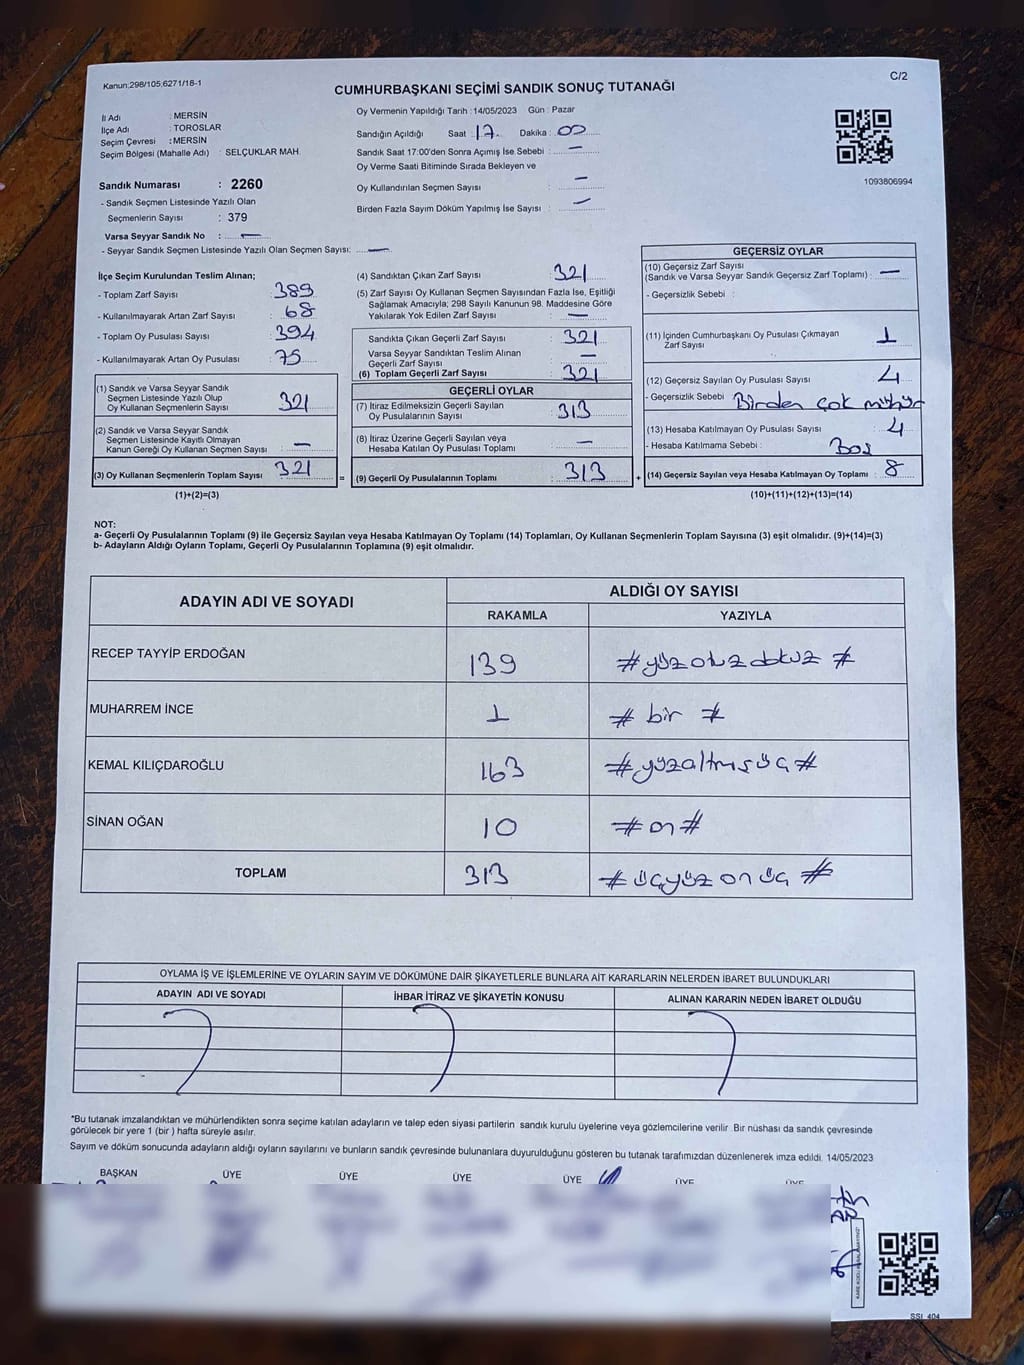 Kanun;298/105;6271/18-1
C/2
CUMHURBAŞKANI SEÇİMİ SANDIK SONUÇ TUTANAĞI
İl Adı : MERSİN
İlçe Adı : TOROSLAR
Seçim Çevresi : MERSİN
Seçim Bölgesi (Mahalle Adı) : SELÇUKLAR MAH.
Sandık Numarası : 2260
- Sandık Seçmen Listesinde Yazılı Olan
Seçmenlerin Sayısı : 379
Varsa Seyyar Sandık No : —
- Seyyar Sandık Seçmen Listesinde Yazılı Olan Seçmen Sayısı: —
Oy Vermenin Yapıldığı Tarih : 14/05/2023 Gün : Pazar
Sandığın Açıldığı Saat 17 Dakika : 00
Sandık Saat 17:00'den Sonra Açımış İse Sebebi : —
Oy Verme Saati Bitiminde Sırada Bekleyen ve
Oy Kullandırılan Seçmen Sayısı : —
Birden Fazla Sayım Döküm Yapılmış İse Sayısı : —
1093806994
İlçe Seçim Kurulundan Teslim Alınan;
- Toplam Zarf Sayısı : 389
- Kullanılmayarak Artan Zarf Sayısı : 68
- Toplam Oy Pusulası Sayısı : 394
- Kullanılmayarak Artan Oy Pusulası : 75
(1) Sandık ve Varsa Seyyar Sandık
Seçmen Listesinde Yazılı Olup
Oy Kullanan Seçmenlerin Sayısı : 321
(2) Sandık ve Varsa Seyyar Sandık
Seçmen Listesinde Kayıtlı Olmayan
Kanun Gereği Oy Kullanan Seçmen Sayısı : —
(3) Oy Kullanan Seçmenlerin Toplam Sayısı : 321
(1)+(2)=(3)
(4) Sandıktan Çıkan Zarf Sayısı : 321
(5) Zarf Sayısı Oy Kullanan Seçmen Sayısından Fazla İse, Eşitliği
Sağlamak Amacıyla; 298 Sayılı Kanunun 98. Maddesine Göre
Yakılarak Yok Edilen Zarf Sayısı : —
Sandıkta Çıkan Geçerli Zarf Sayısı : 321
Varsa Seyyar Sandıktan Teslim Alınan
Geçerli Zarf Sayısı : —
(6) Toplam Geçerli Zarf Sayısı : 321
GEÇERLİ OYLAR
(7) İtiraz Edilmeksizin Geçerli Sayılan
Oy Pusulalarının Sayısı : 313
(8) İtiraz Üzerine Geçerli Sayılan veya
Hesaba Katılan Oy Pusulası Toplamı : —
= (9) Geçerli Oy Pusulalarının Toplamı : 313 +
GEÇERSİZ OYLAR
(10) Geçersiz Zarf Sayısı
(Sandık ve Varsa Seyyar Sandık Geçersiz Zarf Toplamı) : —
- Geçersizlik Sebebi :
(11) İçinden Cumhurbaşkanı Oy Pusulası Çıkmayan
Zarf Sayısı : 1
(12) Geçersiz Sayılan Oy Pusulası Sayısı : 4
- Geçersizlik Sebebi : Birden çok mühür
(13) Hesaba Katılmayan Oy Pusulası Sayısı : 4
- Hesaba Katılmama Sebebi : Boş
(14) Geçersiz Sayılan veya Hesaba Katılmayan Oy Toplamı : 8
(10)+(11)+(12)+(13)=(14)
NOT:
a- Geçerli Oy Pusulalarının Toplamı (9) ile Geçersiz Sayılan veya Hesaba Katılmayan Oy Toplamı (14) Toplamları, Oy Kullanan Seçmenlerin Toplam Sayısına (3) eşit olmalıdır. (9)+(14)=(3)
b- Adayların Aldığı Oyların Toplamı, Geçerli Oy Pusulalarının Toplamına (9) eşit olmalıdır.
ADAYIN ADI VE SOYADI ALDIĞI OY SAYISI
RAKAMLA YAZIYLA
RECEP TAYYİP ERDOĞAN 139 # yüz otuz dokuz #
MUHARREM İNCE 1 # bir #
KEMAL KILIÇDAROĞLU 163 # yüzaltmış üç #
SİNAN OĞAN 10 # on #
TOPLAM 313 # üçyüz on üç #
OYLAMA İŞ VE İŞLEMLERİNE VE OYLARIN SAYIM VE DÖKÜMÜNE DAİR ŞİKAYETLERLE BUNLARA AİT KARARLARIN NELERDEN İBARET BULUNDUKLARI
ADAYIN ADI VE SOYADI İHBAR İTİRAZ VE ŞİKAYETİN KONUSU ALINAN KARARIN NEDEN İBARET OLDUĞU
*Bu tutanak imzalandıktan ve mühürlendikten sonra seçime katılan adayların ve talep eden siyasi partilerin sandık kurulu üyelerine veya gözlemcilerine verilir. Bir nüshası da sandık çevresinde
görülecek bir yere 1 (bir ) hafta süreyle asılır.
Sayım ve döküm sonucunda adayların aldığı oyların sayılarını ve bunların sandık çevresinde bulunanlara duyurulduğunu gösteren bu tutanak tarafımızdan düzenlenerek imza edildi. 14/05/2023
BAŞKAN ÜYE ÜYE ÜYE ÜYE ÜYE ÜYE
SSI_404